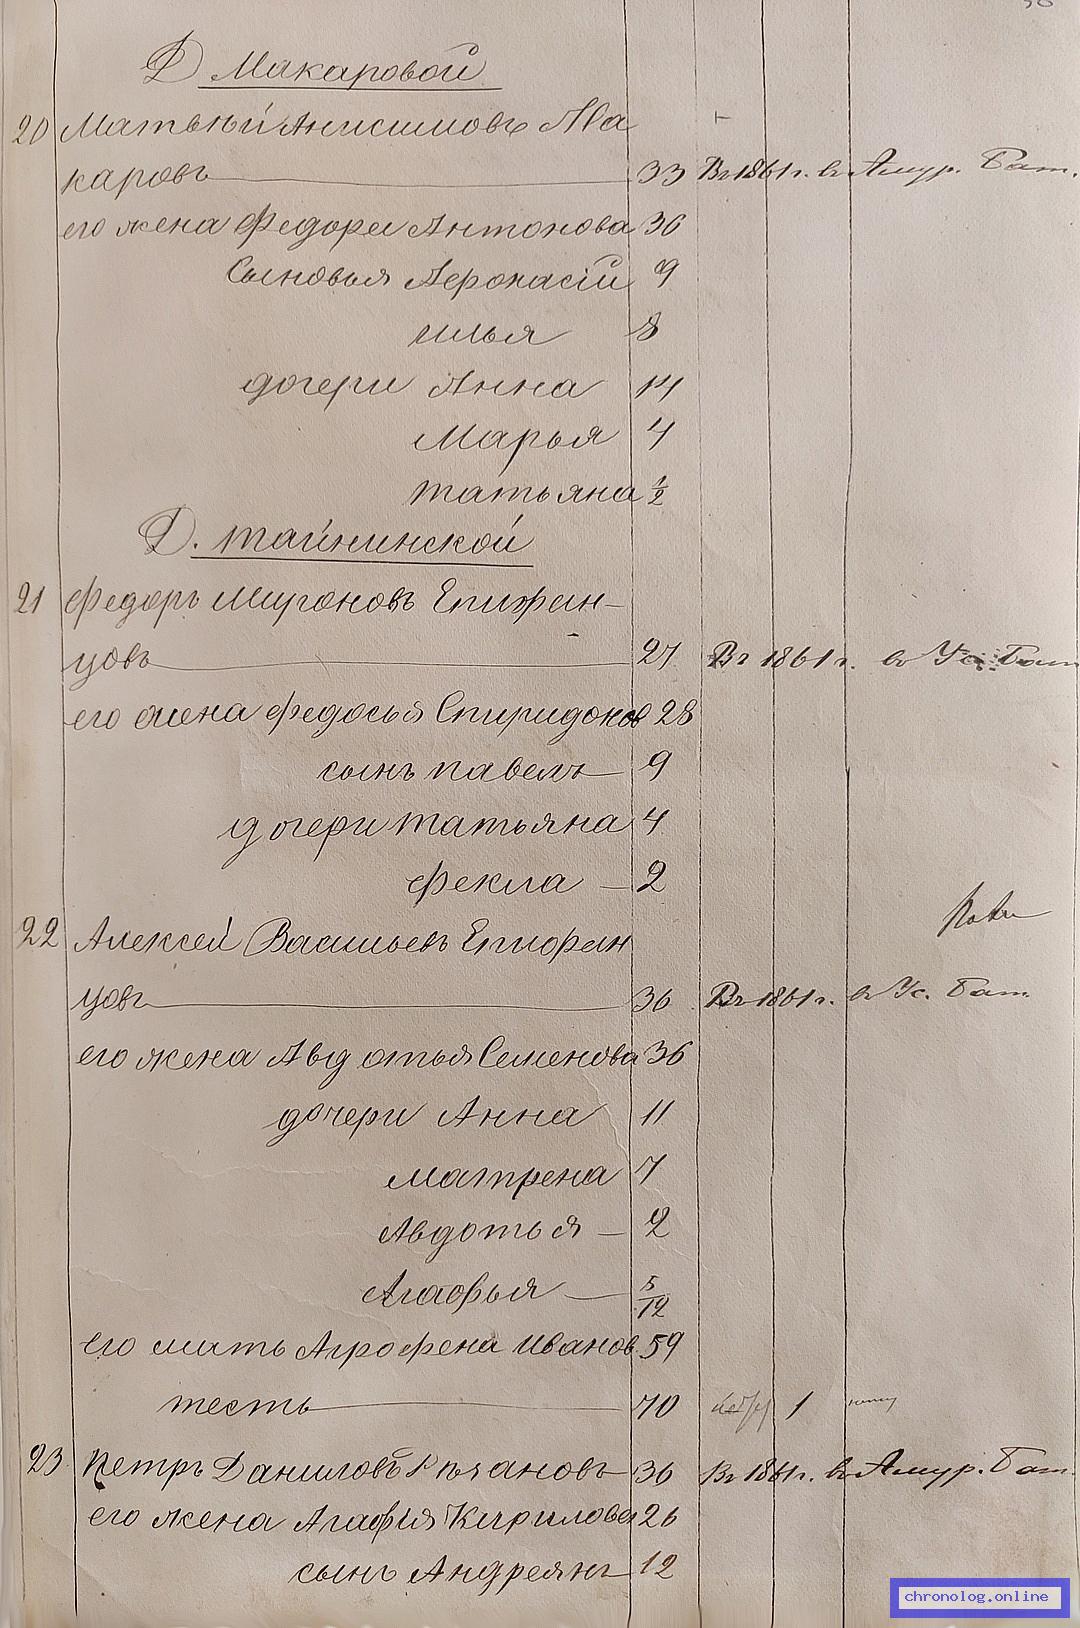 Д. Макаровой
20 Матвѣй Анисимовъ Ма
каровъ 33 Въ 1861 г. въ Амур. Бат.
его жена Федора Антонова 36
Сыновья Аѳонасій 9
Илья 8
дочери Анна 14
Марья 4
Татьяна 1/2
Д. Тайнинской
21 Федоръ Мироновъ Епифан-
цовъ 27 Въ 1861 г. въ Ус. Бат.
его жена Федосья Спиридонов 28
сынъ Павелъ 9
дочери Татьяна 4
Фекла 2
22 Алексей Васильевъ Епифан
цовъ 36 Въ 1861 г. въ Ус. Бат.
его жена Авдотья Семенова 36
дочери Анна 11
Матрена 7
Авдотья 2
Агафья 5/12
его мать Агрофена Иванов 59
тесть 70 1
23 Петръ Даниловъ 36 Въ 1861 г. въ Амур. Бат.
его жена Агафія Кирилова 26
сынъ Андреянъ 12
chronolog.online